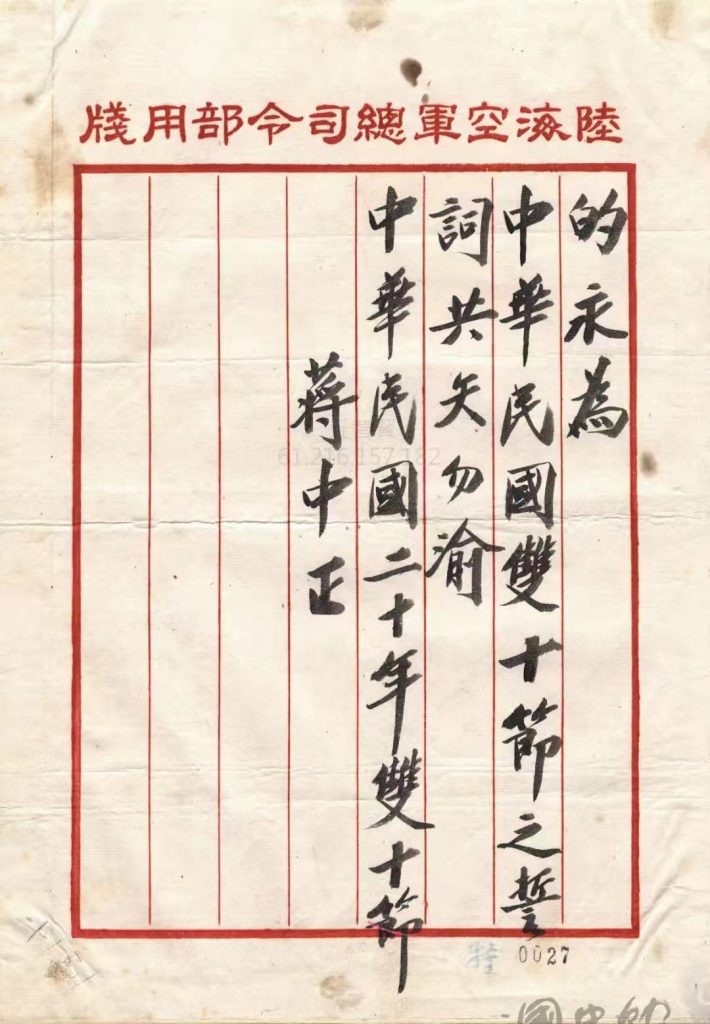 陸海空軍總司令部用牋
的永為
中華民國雙十節之誓
詞共矢勿渝
中華民國二十年雙十節
蔣中正
61.216.157.182
特
0027